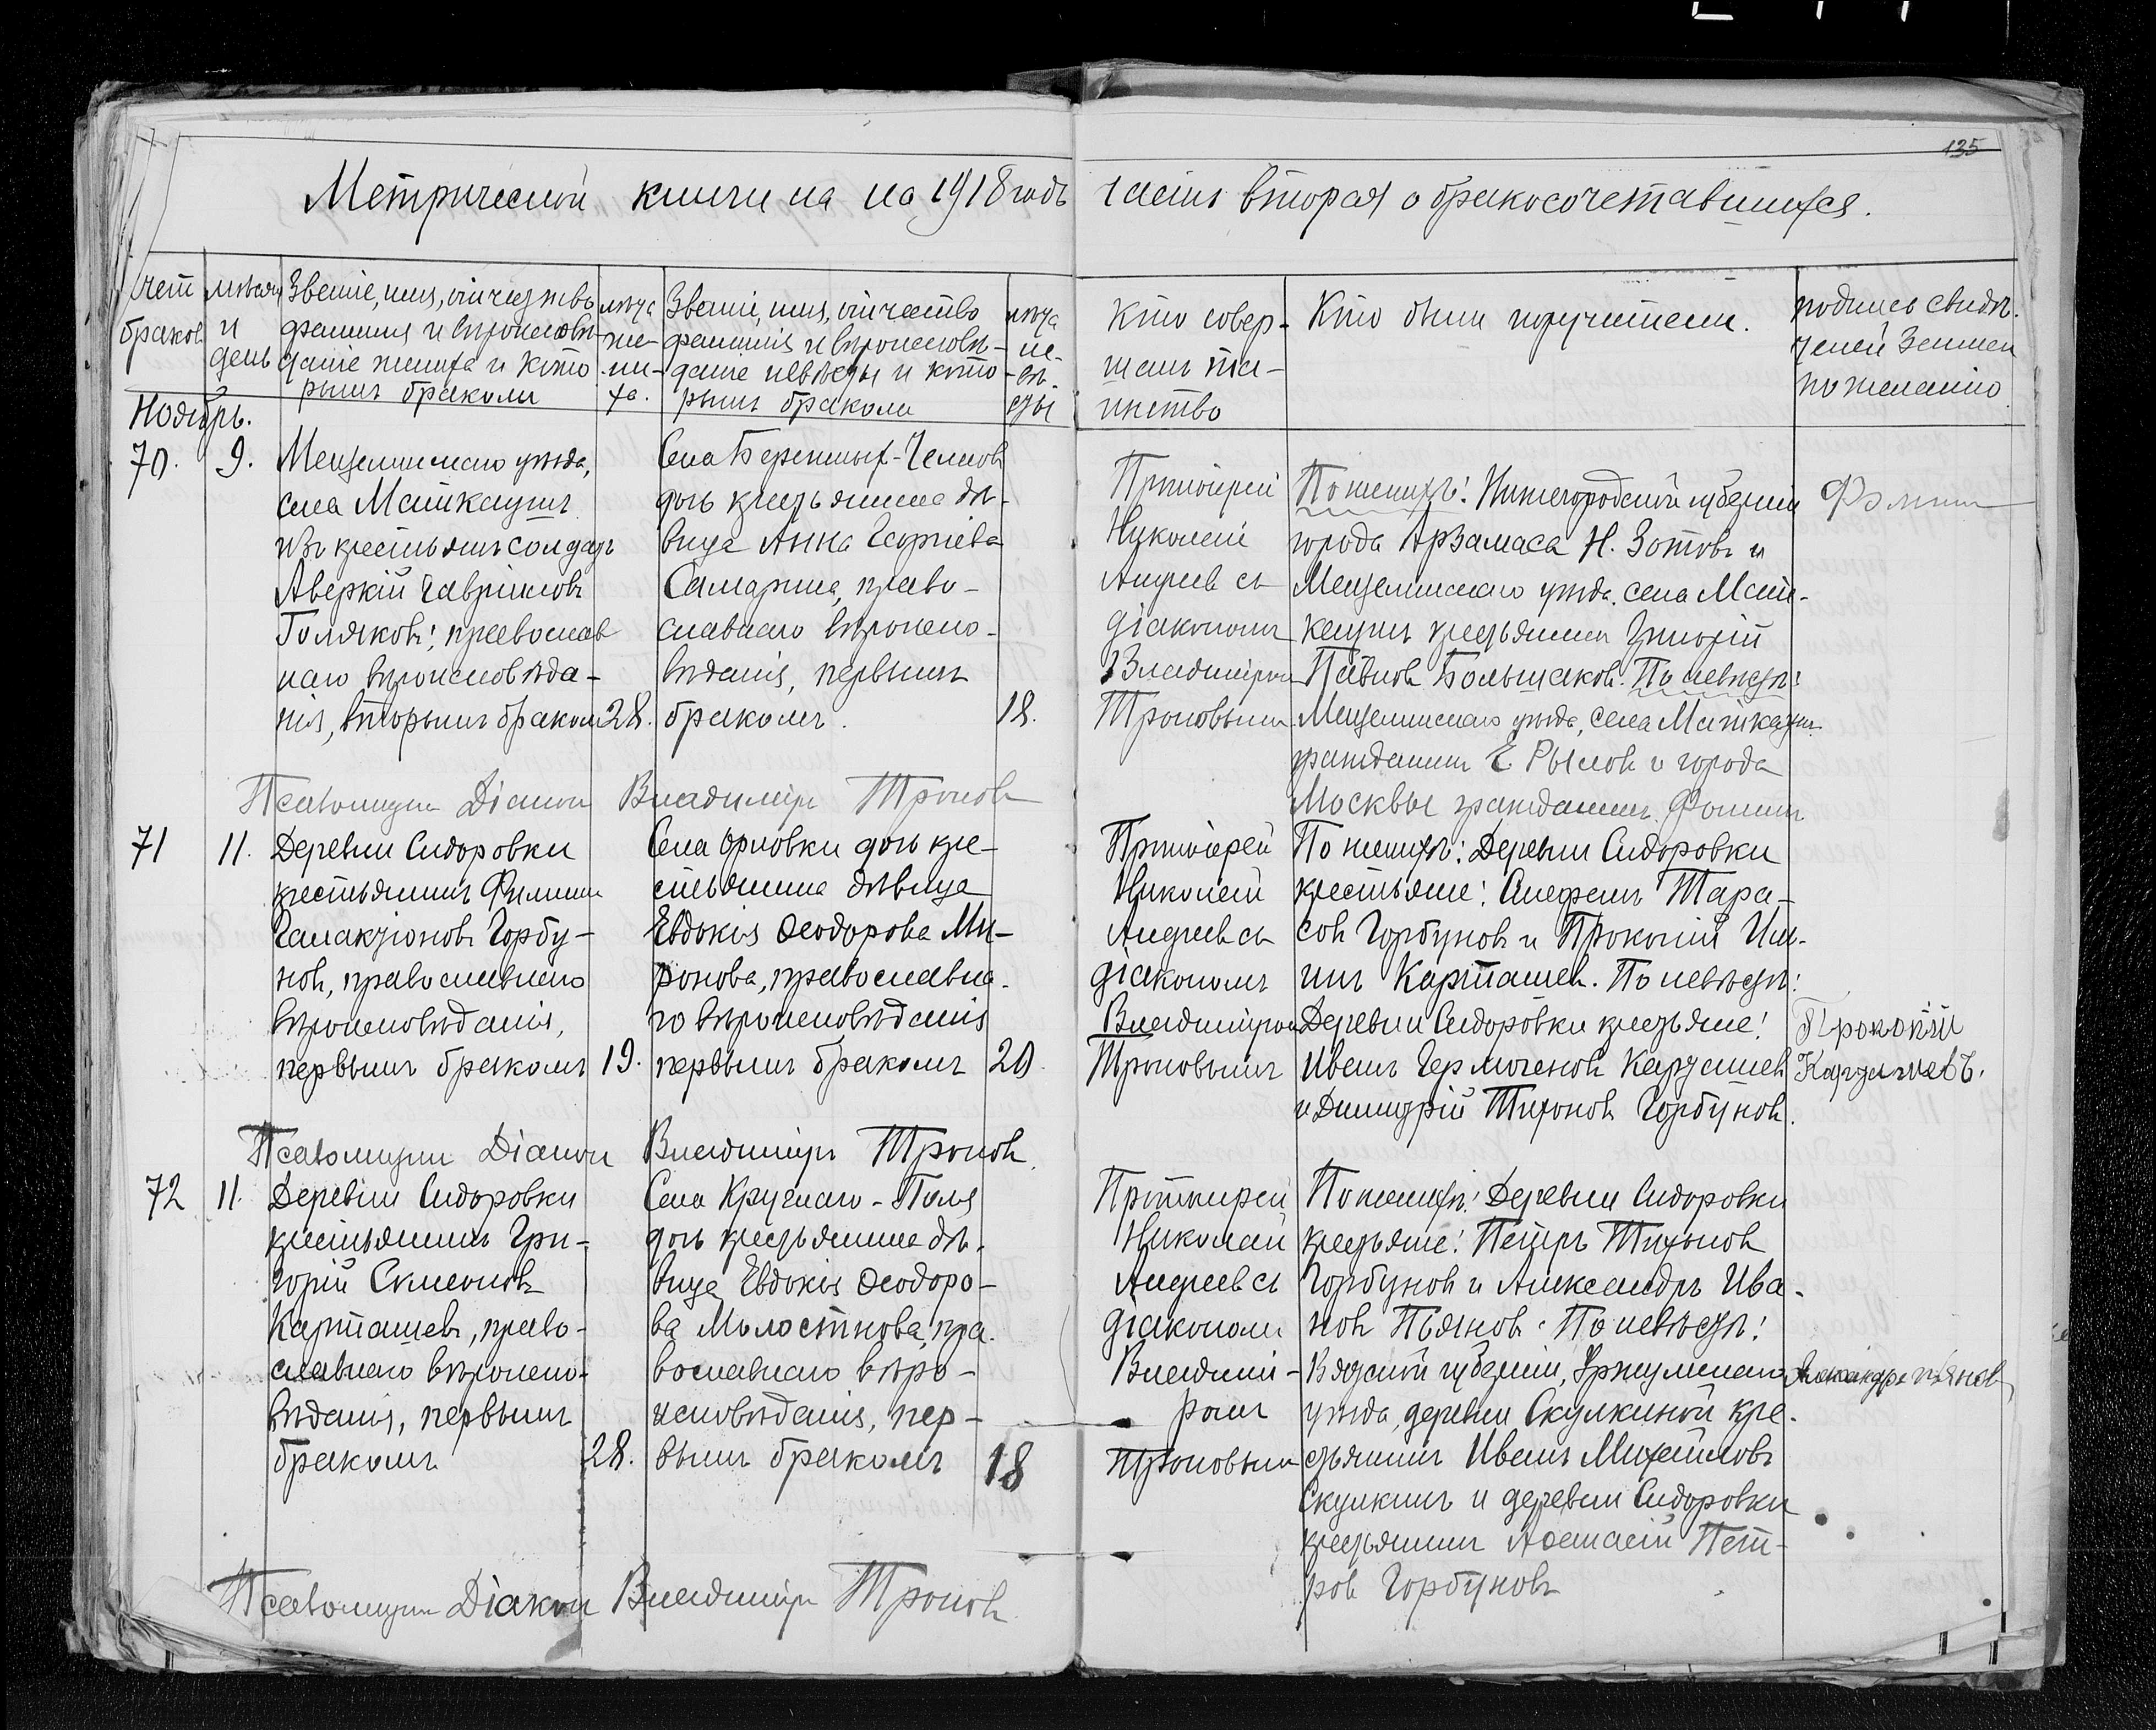 135
Метрической книги на на 1918 годъ части вторая о бракосочетавшихся.
Счет браков
месяц и день
Званіе, имя, отчество
фамилия и вѣроисповѣ-
даніе жениха и кото
рымъ бракомъ
лѣта
же-
ни-
ха.
Званіе, имя, отчество
фамилія и вѣроисповѣ-
даніе невѣсты и кото-
рымъ бракомъ
лѣта
не-
вѣ-
сты
Кто совер-
шалъ таи-
инство
Кто были поручители.
подпись свидѣ-
телей записи
по желанію
Ноябрь.
70. 9.
Мензелинскаго уѣзда,
села Маткаушъ
изъ крестьянъ солдатъ
Аверкій Гавриловъ
Голяковъ, православ
наго вѣроисповѣда-
нія, вторымъ бракомъ 28.
Села Бережныхъ-Челновъ
дочь крестьянина дѣ-
вица Анна Георгіева
Самарина, право-
славнаго вѣроиспо-
вѣданія, первымъ
бракомъ. 18.
Протоіерей
Николай
Андреевъ съ
діакономъ
Владиміромъ
Троновымъ
По женихѣ: Нижегородской губерніи
города Арзамаса Н. Зотовъ и
Мензелинскаго уѣзда, села Мат-
каушъ крестьянинъ Григорій
Павловъ Большаковъ. По невѣстѣ:
Мензелинскаго уѣзда, села Маткаушъ
гражданинъ Е. Рыловъ и города
Москвы гражданинъ Фоминъ
Фомин
Псаломщикъ Діаконъ Владиміръ Троновъ
71 11.
Деревни Сидоровки
крестьянинъ Филиппъ
Галактіоновъ Горбу-
новъ, православнаго
вѣроисповѣданія,
первымъ бракомъ 19.
Села Орловки дочь кре-
стьянина дѣвица
Евдокія Ѳеодорова Ми-
ронова, православна-
го вѣроисповѣданія
первымъ бракомъ 20.
Протоіерей
Николай
Андреевъ съ
діакономъ
Владиміромъ
Троновымъ
По женихѣ: Деревни Сидоровки
крестьяне: Стефанъ Тара-
совъ Горбуновъ и Прокопій Иль-
инъ Карташевъ. По невѣстѣ:
Деревни Сидоровки крестьяне:
Иванъ Гермогеновъ Карташевъ
и Димитрій Тихоновъ Горбуновъ.
Прокопій
Карташевъ.
Псаломщикъ Діаконъ Владиміръ Троновъ.
72 11.
Деревни Сидоровки
крестьянинъ Гри-
горій Симеоновъ
Карташевъ, право-
славнаго вѣроиспо-
вѣданія, первымъ
бракомъ 28.
Села Круглаго-Поля
дочь крестьянина дѣ-
вица Евдокія Ѳеодоро-
ва Молостнова, пра-
вославнаго вѣро-
исповѣданія, пер-
вымъ бракомъ 18
Протоіерей
Николай
Андреевъ съ
діакономъ
Владимі-
ромъ
Троновымъ
По женихѣ: Деревни Сидоровки
крестьяне: Петръ Тихоновъ
Горбуновъ и Александръ Ива-
новъ Пьяновъ. По невѣстѣ:
Вятской губерніи, Уржумскаго
уѣзда, деревни Скулкиной кре-
стьянинъ Иванъ Михайловъ
Скулкинъ и деревни Сидоровки
крестьянинъ Аѳанасій Пет-
ровъ Горбуновъ
Александръ Пьяновъ
Псаломщикъ Діаконъ Владиміръ Троновъ